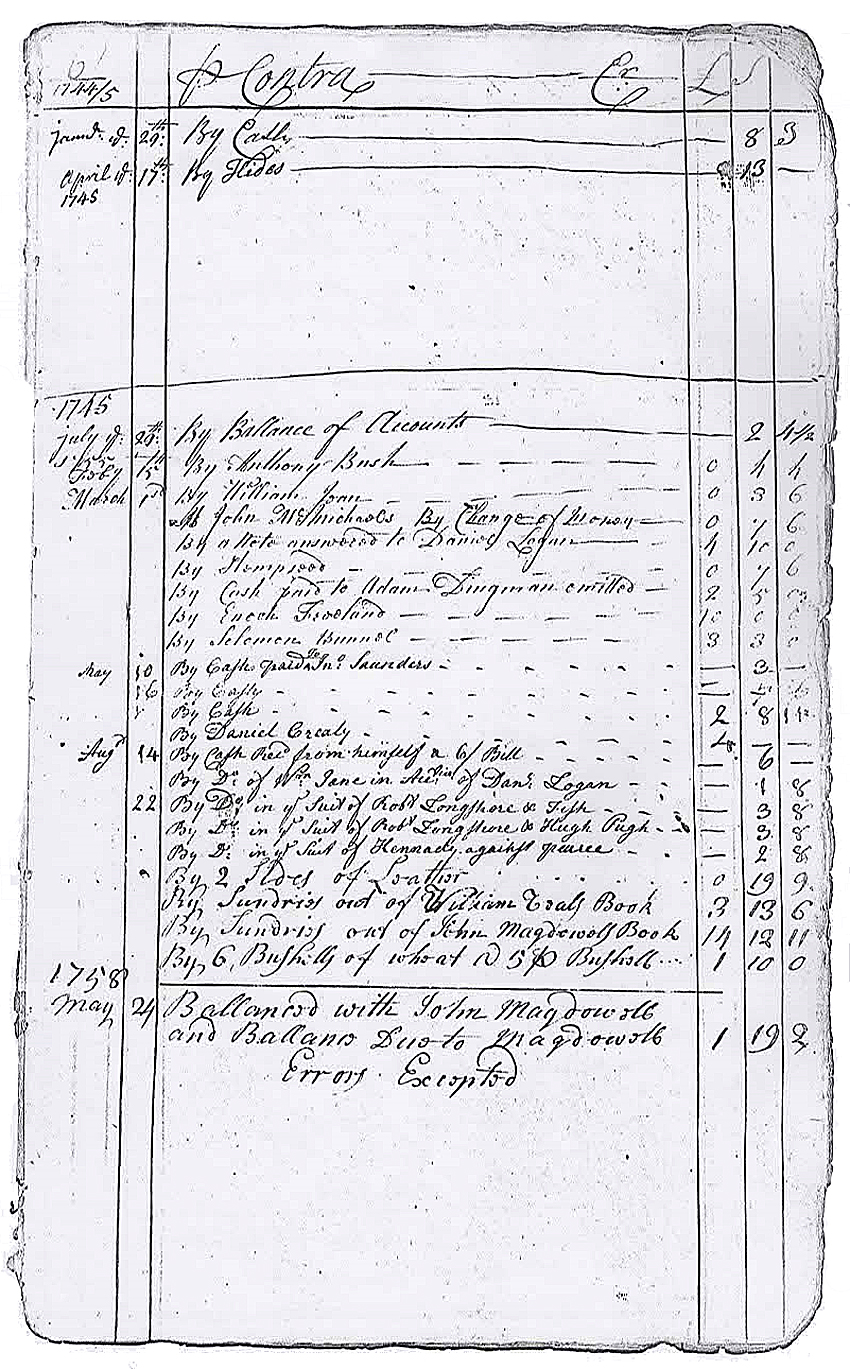 1744/5 ⅌ Contra Cr. £ S
Janu. ye. 29th. By Cash 8 3
April ye. 17th By Hides 13 —
1745
1745
July ye. 29th. By Ballance of Accounts 2 4 1/2
Feby 15 By Anthony Bush 0 4 4
March 1st By William Jean 0 3 6
John McMichaels By Change of Money 0 7 6
By a Note answered to Daniel Logan 4 10 0
By Hempseed 0 7 6
By Cash paid to Adam Dingman omitted 2 5 0
By Enoch Freeland 10 0 0
By Solomon Bunnel 3 3 0
May 10 By Cash paid to Jno. Saunders — 3 —
16 By Cash —
By Cash 2 8 11
By Daniel Crealy 4 — —
Augt 14 By Cash Recd from himself a 6/ Bill — 6 —
By Do. of Wm Jane in Acct of Danl. Logan — 1 8
22 By Do. in ye Suit of Robt Longshore & Fish — 3 8
By Do. in ye Suit of Robt Longshore & Hugh Pugh — 3 8
By Do. in ye Suit of Kennady against pearce — 2 8
By 2 Sides of Leather 0 19 9
By Sundries out of William Teals Book 3 13 6
By Sundries out of John Magdowells Book 14 12 11
By 6 Bushells of wheat @ 5 ⅌ Bushell 1 10 0
1758
May 24 Ballanced with John Magdowell
and Ballance Due to Magdowell 1 19 2
Errors Excepted